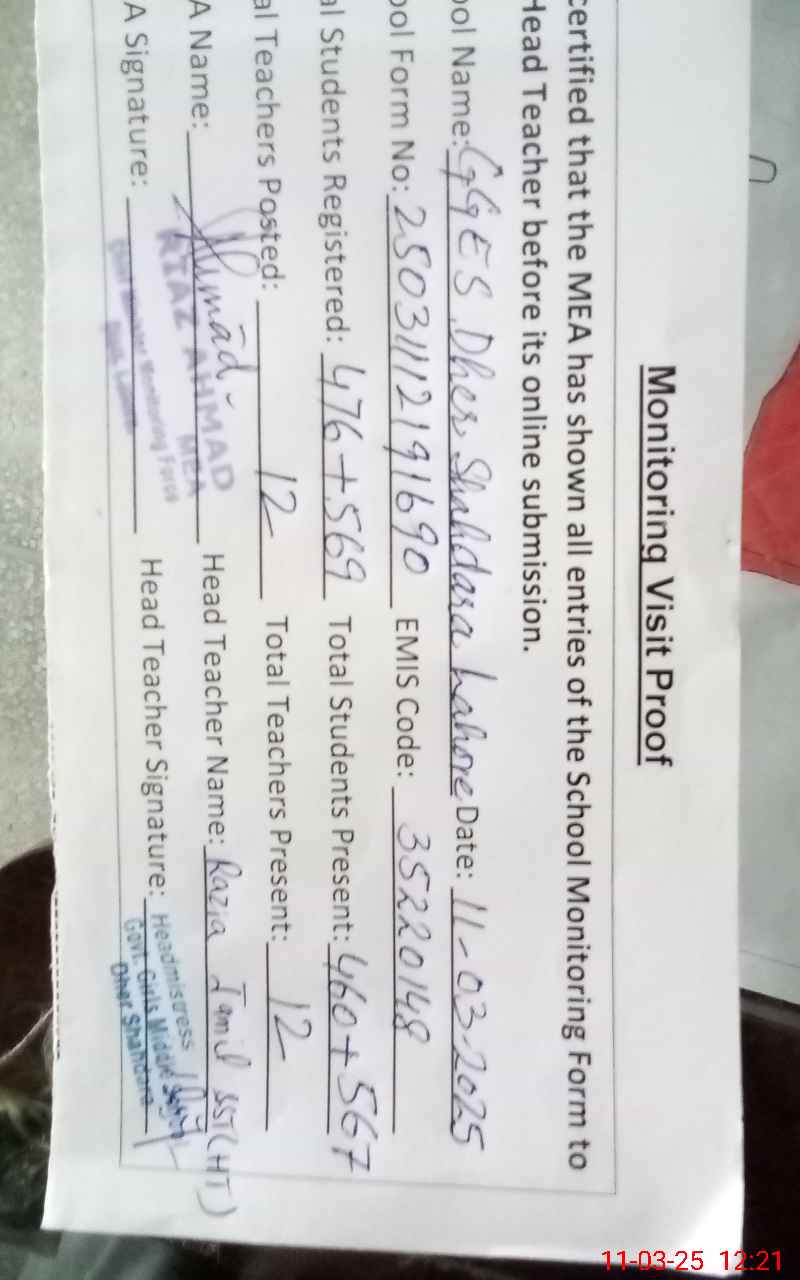 Monitoring Visit Proof
certified that the MEA has shown all entries of the School Monitoring Form to
Head Teacher before its online submission.
ool Name: GGES Dher Shahdara Lahore Date: 11-03-2025
ool Form No: 25031112191690 EMIS Code: 35220148
al Students Registered: 476+569 Total Students Present: 460+567
al Teachers Posted: 12 Total Teachers Present: 12
A Name: Ahmad Head Teacher Name: Razia Jamil SST(HT)
RIAZ AHMAD
MEA
Monitoring Force
A Signature: Head Teacher Signature:
Headmistress
Govt. Girls Middle
Dher Shahdara
11-03-25 12:21